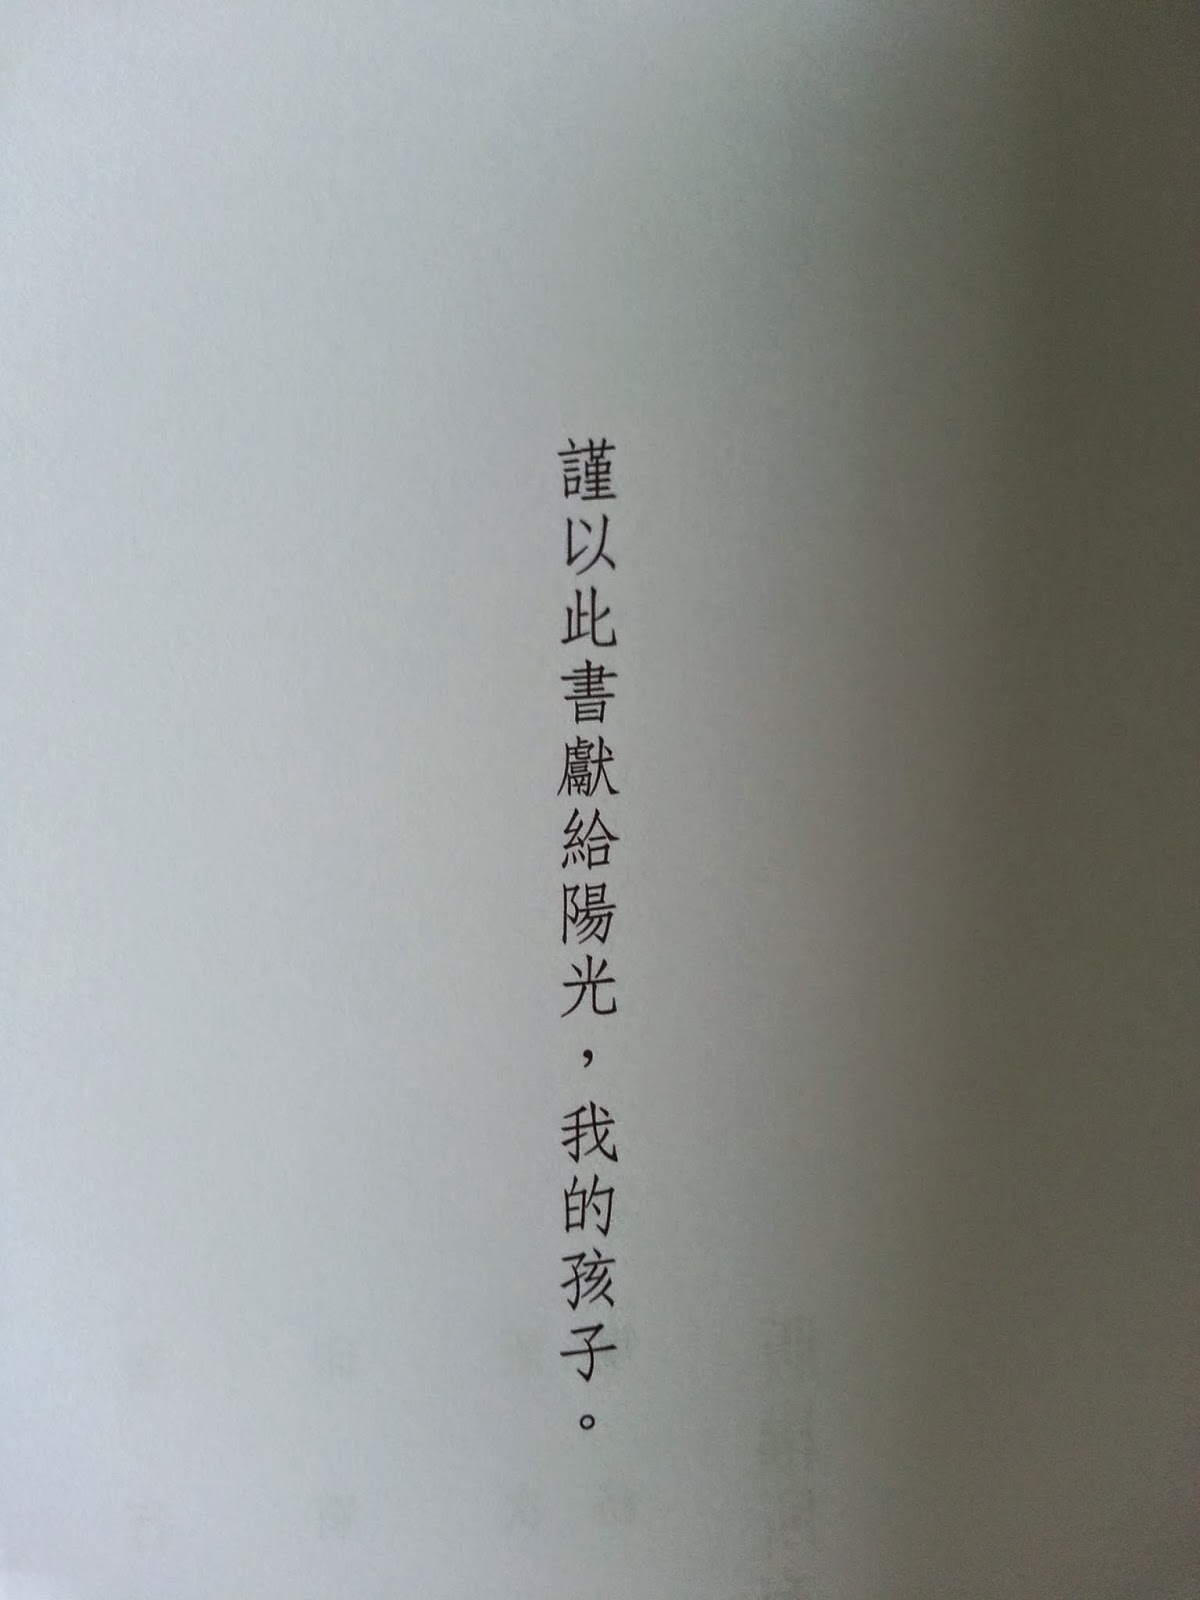 謹以此書獻給陽光，我的孩子。